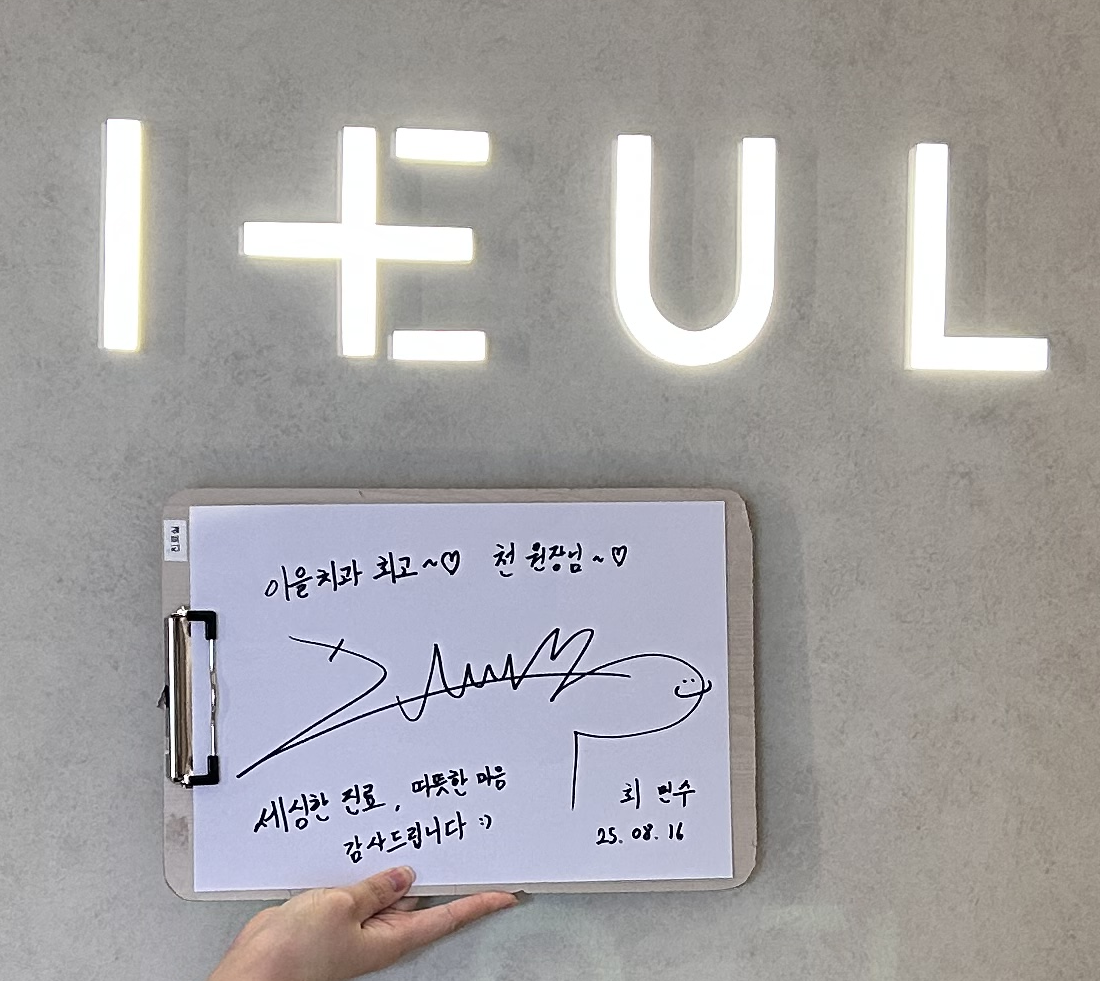 IEUL
이을치과 최고~♡ 천 원장님~♡
세심한 진료, 따뜻한 마음
감사드립니다 :)
최 민수
25. 08. 16